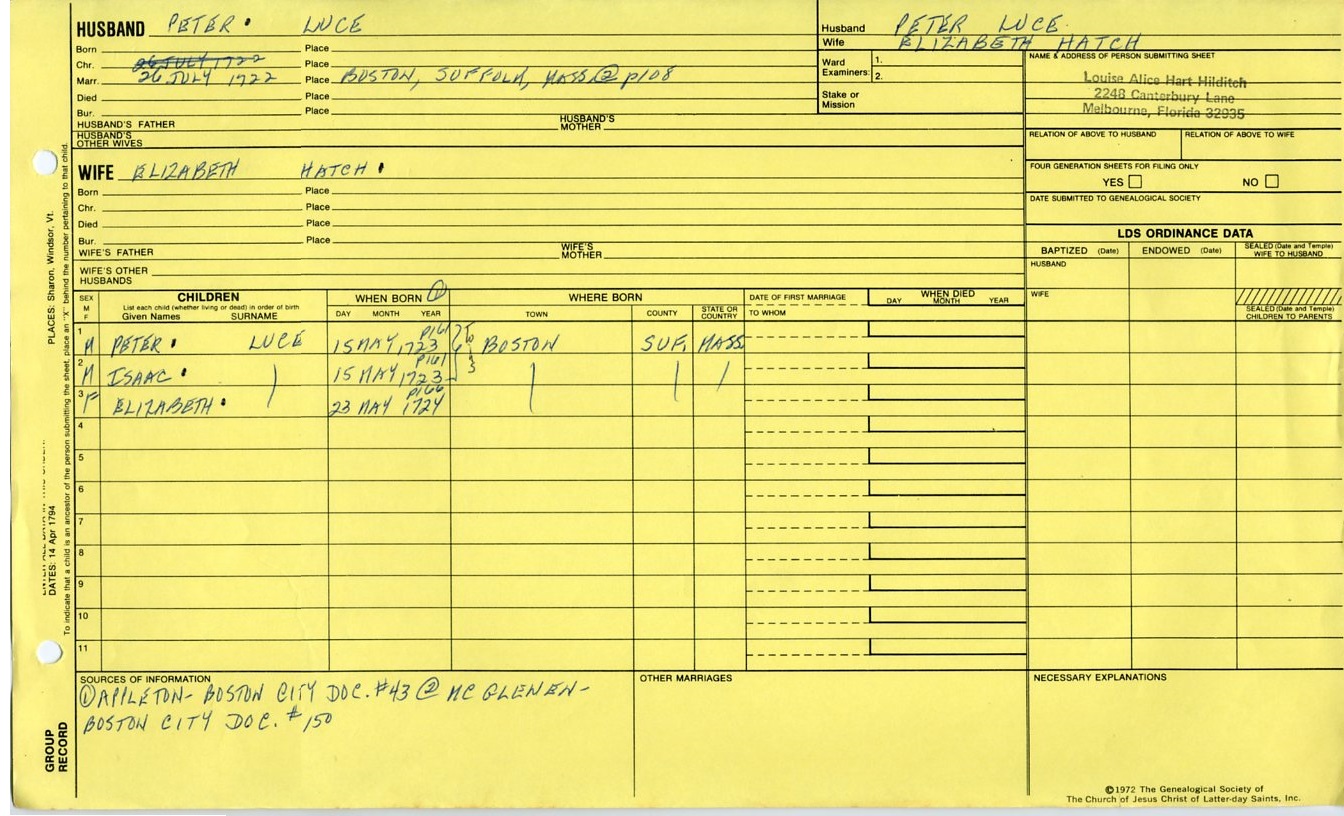 HUSBAND PETER LUCE
Born Place
Chr. 26 JULY 1722 Place
Marr. 26 JULY 1722 Place BOSTON, SUFFOLK, MASS. ② p108
Died Place
Bur. Place
HUSBAND'S FATHER HUSBAND'S MOTHER
HUSBAND'S OTHER WIVES
WIFE ELIZABETH HATCH
Born Place
Chr. Place
Died Place
Bur. Place
WIFE'S FATHER WIFE'S MOTHER
WIFE'S OTHER HUSBANDS
Husband PETER LUCE
Wife ELIZABETH HATCH
Ward Examiners: 1.
2.
Stake or Mission
NAME & ADDRESS OF PERSON SUBMITTING SHEET
Louise Alice Hart Hilditch
2248 Canterbury Lane
Melbourne, Florida 32935
RELATION OF ABOVE TO HUSBAND RELATION OF ABOVE TO WIFE
FOUR GENERATION SHEETS FOR FILING ONLY
YES NO
DATE SUBMITTED TO GENEALOGICAL SOCIETY
LDS ORDINANCE DATA
BAPTIZED (Date) ENDOWED (Date) SEALED (Date and Temple) WIFE TO HUSBAND
HUSBAND
WIFE
SEALED (Date and Temple) CHILDREN TO PARENTS
SEX M F
CHILDREN
List each child (whether living or dead) in order of birth
Given Names SURNAME
WHEN BORN ①
DAY MONTH YEAR
WHERE BORN
TOWN COUNTY STATE OR COUNTRY
DATE OF FIRST MARRIAGE
TO WHOM
WHEN DIED
DAY MONTH YEAR
1 M PETER LUCE 15 MAY 1723 p161 BOSTON SUF. MASS
2 M ISAAC 15 MAY 1723 p161
3 F ELIZABETH 23 MAY 1724 p166
4
5
6
7
8
9
10
11
SOURCES OF INFORMATION
① APPLETON- BOSTON CITY DOC. #43 ② MC GLENEN-
BOSTON CITY DOC. #150
OTHER MARRIAGES
NECESSARY EXPLANATIONS
©1972 The Genealogical Society of
The Church of Jesus Christ of Latter-day Saints, Inc.
PLACES: Sharon, Windsor, Vt.
DATES: 14 Apr 1794
To indicate that a child is an ancestor of the person submitting the sheet, place an "X" behind the number pertaining to that child.
GROUP RECORD